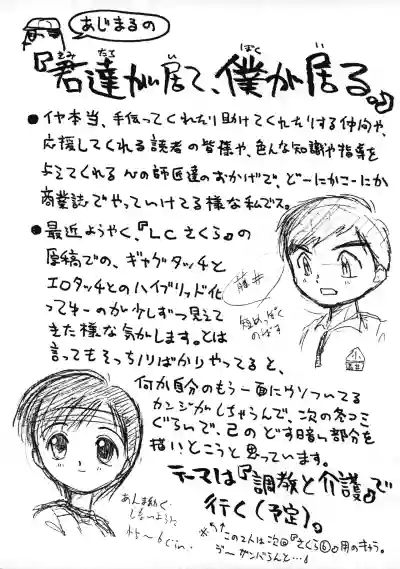 あじまるの
『君達が居て、僕が居る。』
きみ たち い ぼく い
●イヤ本当、手伝ってくれたり助けてくれたりする仲間や、
応援してくれる読者の皆様や、色んな知識や指導を
与えてくれる心の師匠達のおかげで、どーにかこーにか
商業誌でやっていけてる様な私でス。
●最近ようやく、『LCさくら』の
原稿での、ギャグタッチと
エロタッチとのハイブリッド化
ってゆーのが少しずつ見えて
きた様な気がします。とは
言ってもそっちバかりやってると、
何か自分のもう一面にウソついてる
カンジがしちゃうんで、次の冬コミ
ぐらいで、己のどす暗い部分を
描いとこうと思っています。
テーマは『調教と介護』で
行く(予定)。
藤井
短めっぽく
のばす
小
あんま動く
しないように
※↑この2人は次回『さくら⑥』用のキャラ。